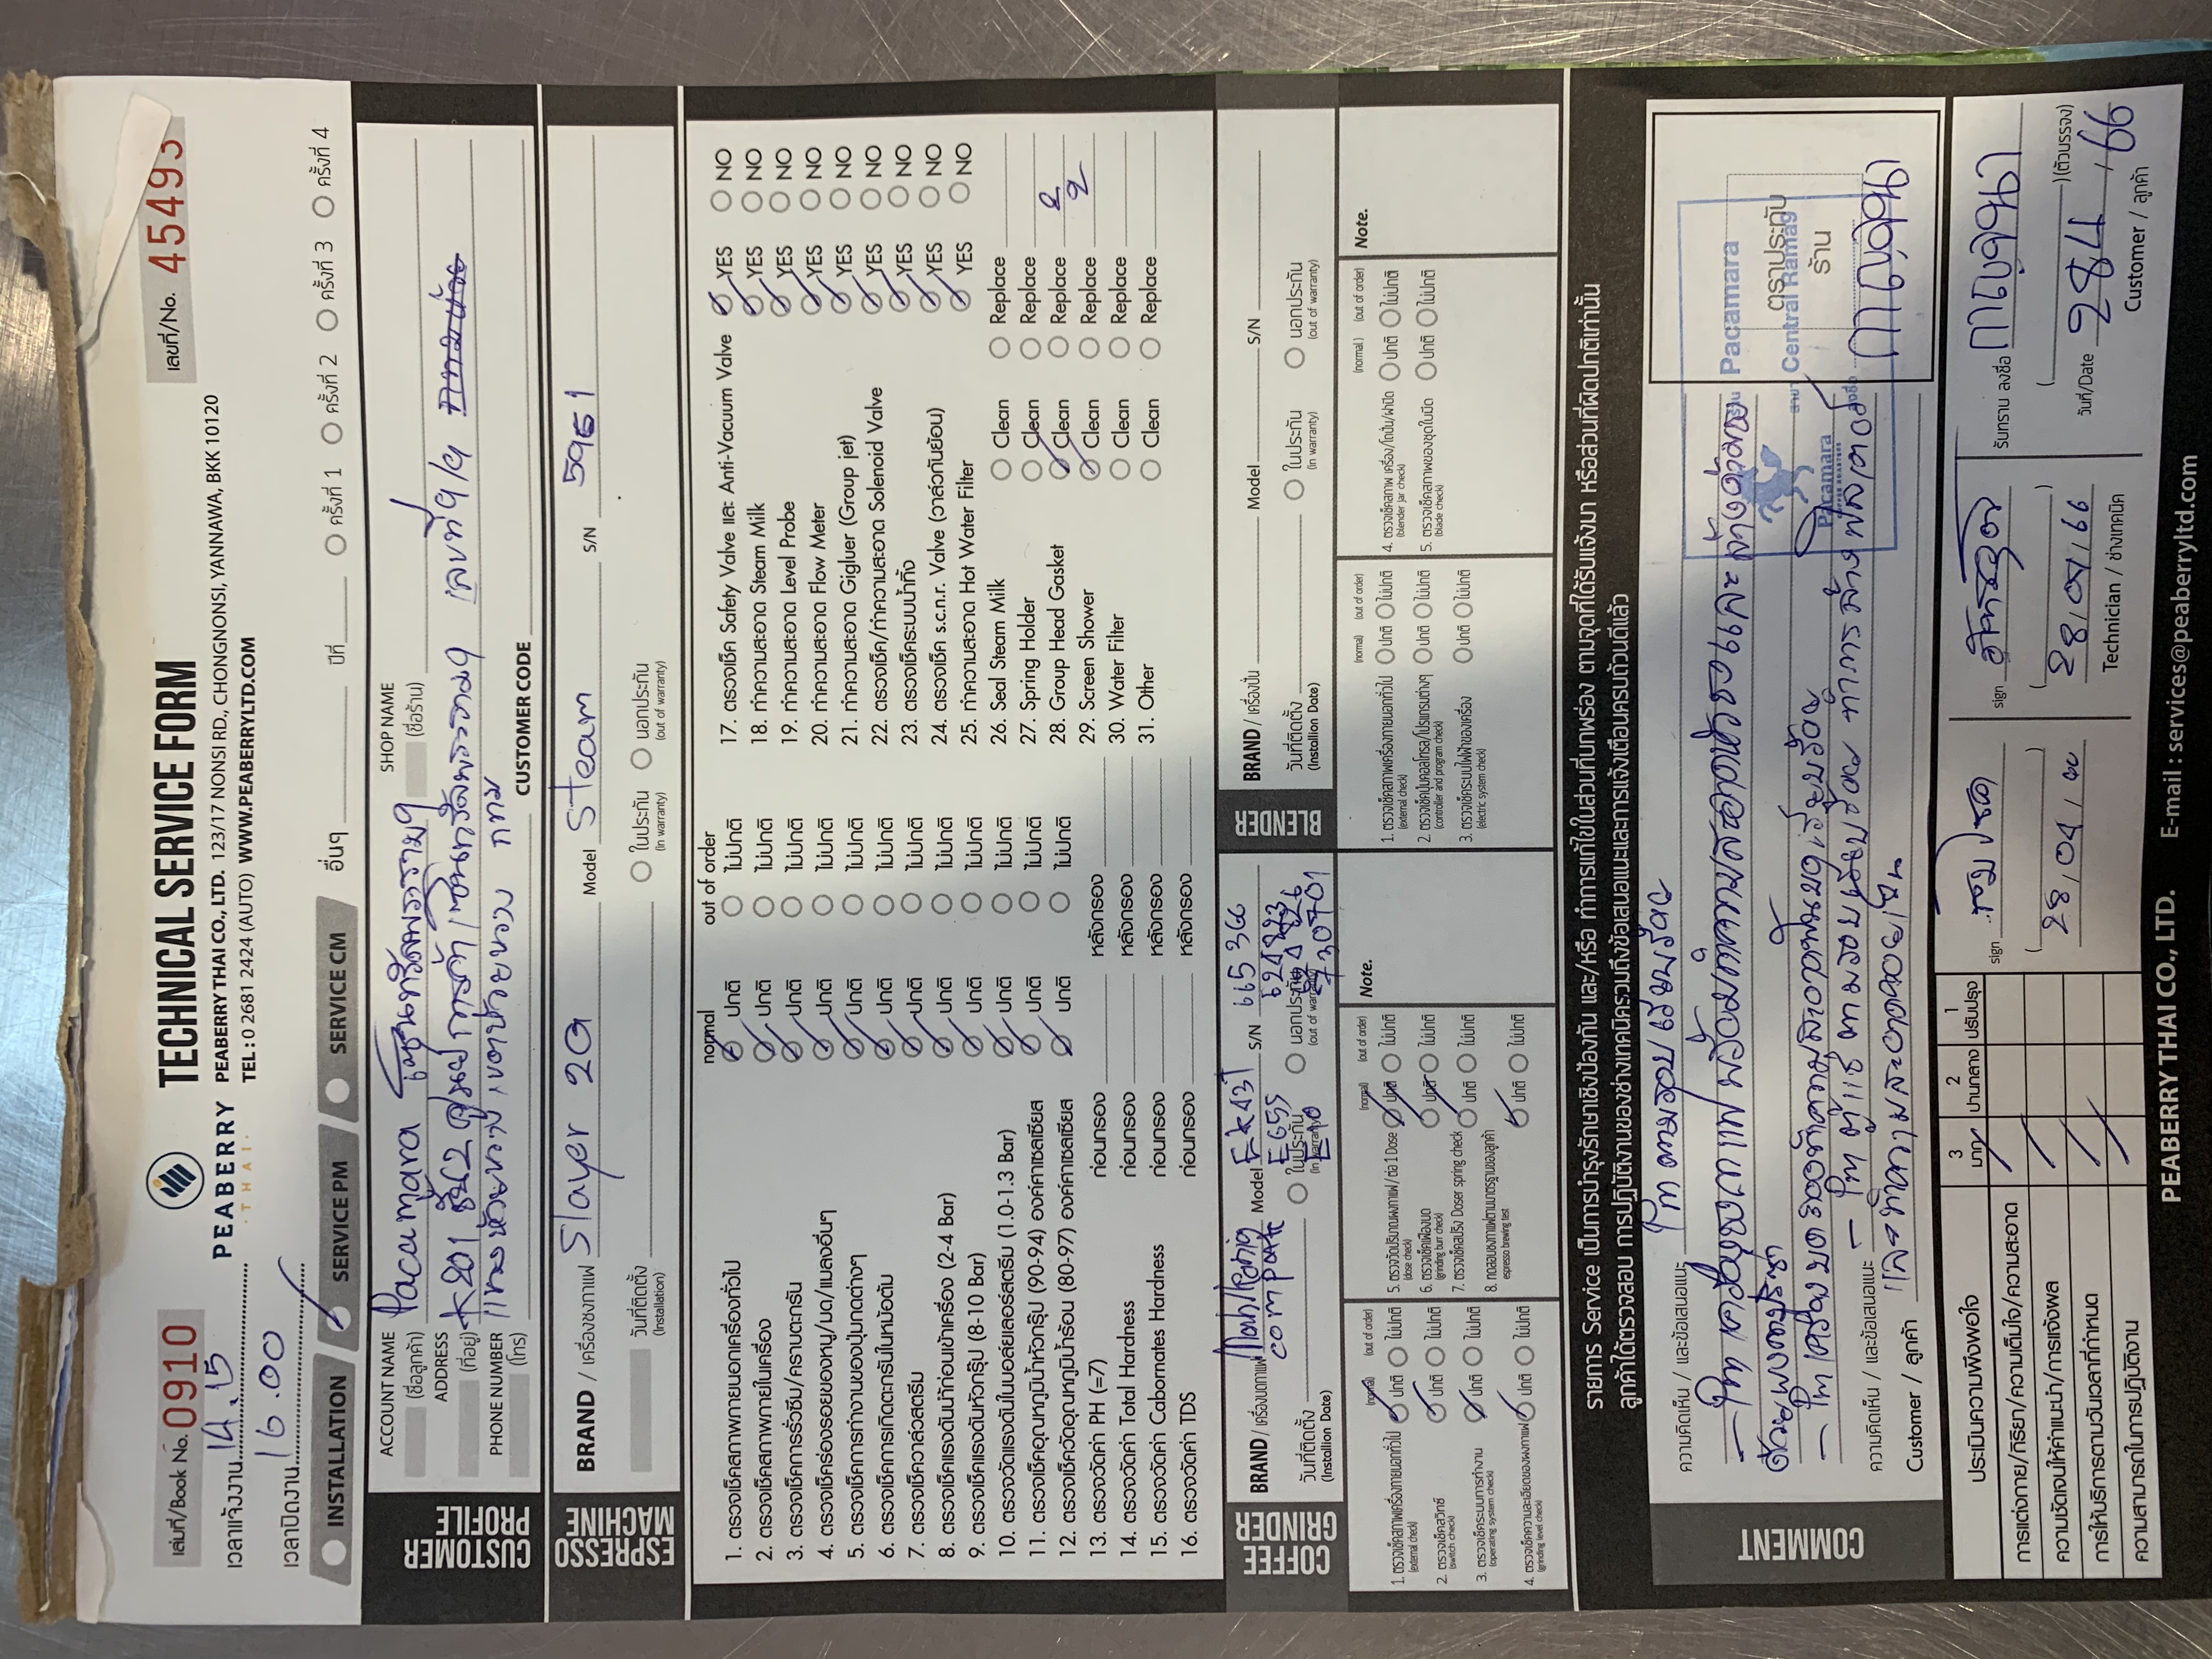 เล่มที่/Book No. 0910
เลขที่/No. 45493
PEABERRY
THAI
TECHNICAL SERVICE FORM
PEABERRY THAI CO., LTD. 123/17 NONSI RD., CHONGNONSI, YANNAWA, BKK 10120
TEL : 0 2681 2424 (AUTO) WWW.PEABERRYLTD.COM
เวลาแจ้งงาน 14.15
เวลาปิดงาน 16.00
INSTALLATION SERVICE PM SERVICE CM อื่นๆ ปีที่ ครั้งที่ 1 ครั้งที่ 2 ครั้งที่ 3 ครั้งที่ 4
CUSTOMER PROFILE
ACCOUNT NAME (ชื่อลูกค้า) Pacamara เซ็นทรัลพระราม9 SHOP NAME (ชื่อร้าน)
ADDRESS (ที่อยู่) 201 ชั้น2 ศูนย์การค้าเซ็นทรัลพระราม9 เลขที่ 9/9
แขวงห้วยขวาง เขตห้วยขวาง กทม
PHONE NUMBER (โทร) CUSTOMER CODE
ESPRESSO MACHINE
BRAND / เครื่องชงกาแฟ Slayer 2G Model Steam S/N 5961
วันที่ติดตั้ง (Installation) ในประกัน (in warranty) นอกประกัน (out of warranty)
normal out of order
1. ตรวจเช็คสภาพภายนอกเครื่องทั่วไป ปกติ ไม่ปกติ
2. ตรวจเช็คสภาพภายในเครื่อง ปกติ ไม่ปกติ
3. ตรวจเช็คการรั่วซึม/คราบตะกรัน ปกติ ไม่ปกติ
4. ตรวจเช็คร่องรอยของหนู/มด/แมลงอื่นๆ ปกติ ไม่ปกติ
5. ตรวจเช็คการทำงานของปุ่มกดต่างๆ ปกติ ไม่ปกติ
6. ตรวจเช็คการเกิดตะกรันในหม้อต้ม ปกติ ไม่ปกติ
7. ตรวจเช็ควาล์วสตรีม ปกติ ไม่ปกติ
8. ตรวจเช็คแรงดันน้ำก่อนเข้าเครื่อง (2-4 Bar) ปกติ ไม่ปกติ
9. ตรวจเช็คแรงดันหัวกรุ๊ป (8-10 Bar) ปกติ ไม่ปกติ
10. ตรวจวัดแรงดันในบอล์ยเลอร์สตรีม (1.0-1.3 Bar) ปกติ ไม่ปกติ
11. ตรวจเช็คอุณหภูมิน้ำหัวกรุ๊ป (90-94) องค์ศาเซลเซียส ปกติ ไม่ปกติ
12. ตรวจเช็ควัดอุณหภูมิน้ำร้อน (80-97) องค์ศาเซลเซียส ปกติ ไม่ปกติ
13. ตรวจวัดค่า PH (=7) ก่อนกรอง หลังกรอง
14. ตรวจวัดค่า Total Hardness ก่อนกรอง หลังกรอง
15. ตรวจวัดค่า Cabornates Hardness ก่อนกรอง หลังกรอง
16. ตรวจวัดค่า TDS ก่อนกรอง หลังกรอง
17. ตรวจเช็ค Safety Valve และ Anti-Vacuum Valve YES NO
18. ทำความสะอาด Steam Milk YES NO
19. ทำความสะอาด Level Probe YES NO
20. ทำความสะอาด Flow Meter YES NO
21. ทำความสะอาด Gigluer (Group jet) YES NO
22. ตรวจเช็ค/ทำความสะอาด Solenoid Valve YES NO
23. ตรวจเช็คระบบน้ำทิ้ง YES NO
24. ตรวจเช็ค s.c.n.r. Valve (วาล์วกันย้อน) YES NO
25. ทำความสะอาด Hot Water Filter YES NO
26. Seal Steam Milk Clean Replace
27. Spring Holder Clean Replace
28. Group Head Gasket Clean Replace 2
29. Screen Shower Clean Replace 2
30. Water Filter Clean Replace
31. Other Clean Replace
COFFEE GRINDER
BRAND / เครื่องบดกาแฟ Mahlkonig Model EK43T S/N 665366
E65S 624823
วันที่ติดตั้ง (Installion Date) ในประกัน (in warranty) นอกประกัน (out of warranty)
E10 730701
BLENDER
BRAND / เครื่องปั่น Model S/N
วันที่ติดตั้ง (Installion Date) ในประกัน (in warranty) นอกประกัน (out of warranty)
(normal) (out of order)
1. ตรวจเช็คสภาพเครื่องภายนอกทั่วไป (external check) ปกติ ไม่ปกติ
2. ตรวจเช็คสวิทซ์ (switch check) ปกติ ไม่ปกติ
3. ตรวจเช็คระบบการทำงาน (operating system check) ปกติ ไม่ปกติ
4. ตรวจเช็คความละเอียดของผงกาแฟ (grinding level check) ปกติ ไม่ปกติ
(normal) (out of order)
5. ตรวจวัดปริมาณผงกาแฟ / ต่อ 1 Dose (dose check) ปกติ ไม่ปกติ
6. ตรวจเช็คเฟืองบด (grinding burr check) ปกติ ไม่ปกติ
7. ตรวจเช็คสปริง Doser spring check ปกติ ไม่ปกติ
8. ทดสอบชงกาแฟตามมาตรฐานของลูกค้า espresso brewing test ปกติ ไม่ปกติ
Note.
(normal) (out of order)
1. ตรวจเช็คสภาพเครื่องภายนอกทั่วไป (external check) ปกติ ไม่ปกติ
2. ตรวจเช็คปุ่มคอลโทรล/โปรแกรมต่างๆ (controller and program check) ปกติ ไม่ปกติ
3. ตรวจเช็คระบบไฟฟ้าของเครื่อง (electric system check) ปกติ ไม่ปกติ
(normal ) (out of order)
4. ตรวจเช็คสภาพ เครื่อง/โถปั่น/ฝาปิด (blender jar check) ปกติ ไม่ปกติ
5. ตรวจเช็คสภาพของชุดใบมีด (blade check) ปกติ ไม่ปกติ
Note.
รายการ Service เป็นการบำรุงรักษาเชิงป้องกัน และ/หรือ ทำการแก้ไขในส่วนที่บกพร่อง ตามจุดที่ได้รับแจ้งมา หรือส่วนที่ผิดปกติเท่านั้น
ลูกค้าได้ตรวจสอบ การปฏิบัติงานของช่างเทคนิครวมถึงข้อเสนอแนะและการแจ้งเตือนครบถ้วนดีแล้ว
COMMENT
ความคิดเห็น / และข้อเสนอแนะ Pm ตามรอบเรียบร้อย
- Pm เครื่องชงกาแฟ พร้อมทำความสะอาดหัวชงและล้างด้ามชง
ด้วยผงคาปูริซ่า
- Pm เครื่องบด ทำความสะอาดฟันบดเรียบร้อย
ความคิดเห็น / และข้อเสนอแนะ - Pm ตู้แช่ ตามรอบเรียบร้อย ทำการล้างฟิลเตอร์
Customer / ลูกค้า และทำความสะอาดคอยเย็น
ร้าน Pacamara
สาขา Central Rama9
Pacamara
COFFEE ROASTERS
ลงชื่อ
ตราประทับ
ร้าน
กาญจนา
ประเมินความพึงพอใจ 3 มาก 2 ปานกลาง 1 ปรับปรุง
การแต่งกาย/กิริยา/ความเต็มใจ/ความสะอาด
ความชัดเจนให้คำแนะนำ/การแจ้งผล
การให้บริการตามวันเวลาที่กำหนด
ความสามารถในการปฏิบัติงาน
sign ชมโชค
28/04/66
sign
28/04/66
Technician / ช่างเทคนิค
รับทราบ ลงชื่อ กาญจนา
(ตัวบรรจง)
วันที่/Date 28/4/66
Customer / ลูกค้า
PEABERRY THAI CO., LTD. E-mail : services@peaberryltd.com